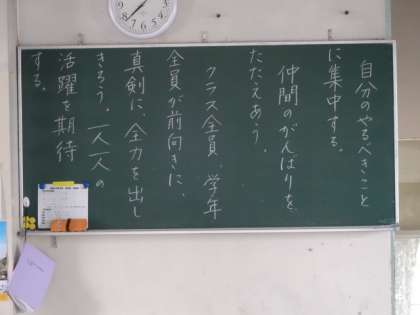 自分のやるべきこと
に集中する。
仲間のがんばりを
たたえあう。
クラス全員、学年
全員が前向きに、
真剣に、全力を出し
きろう。一人一人の
活躍を期待
する。